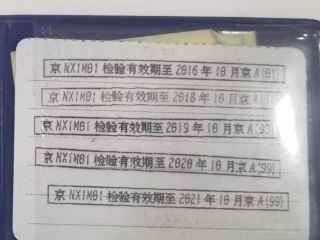 京 NX1M01 检验有效期至 2016 年 10 月京 A(01)
京 NX1M01 检验有效期至 2018 年 10 月京 A
京 NX1M01 检验有效期至 2019 年 10 月京 A(99)
京 NX1M01 检验有效期至 2020 年 10 月京 A(99)
京 NX1M01 检验有效期至 2021 年 10 月京 A(99)